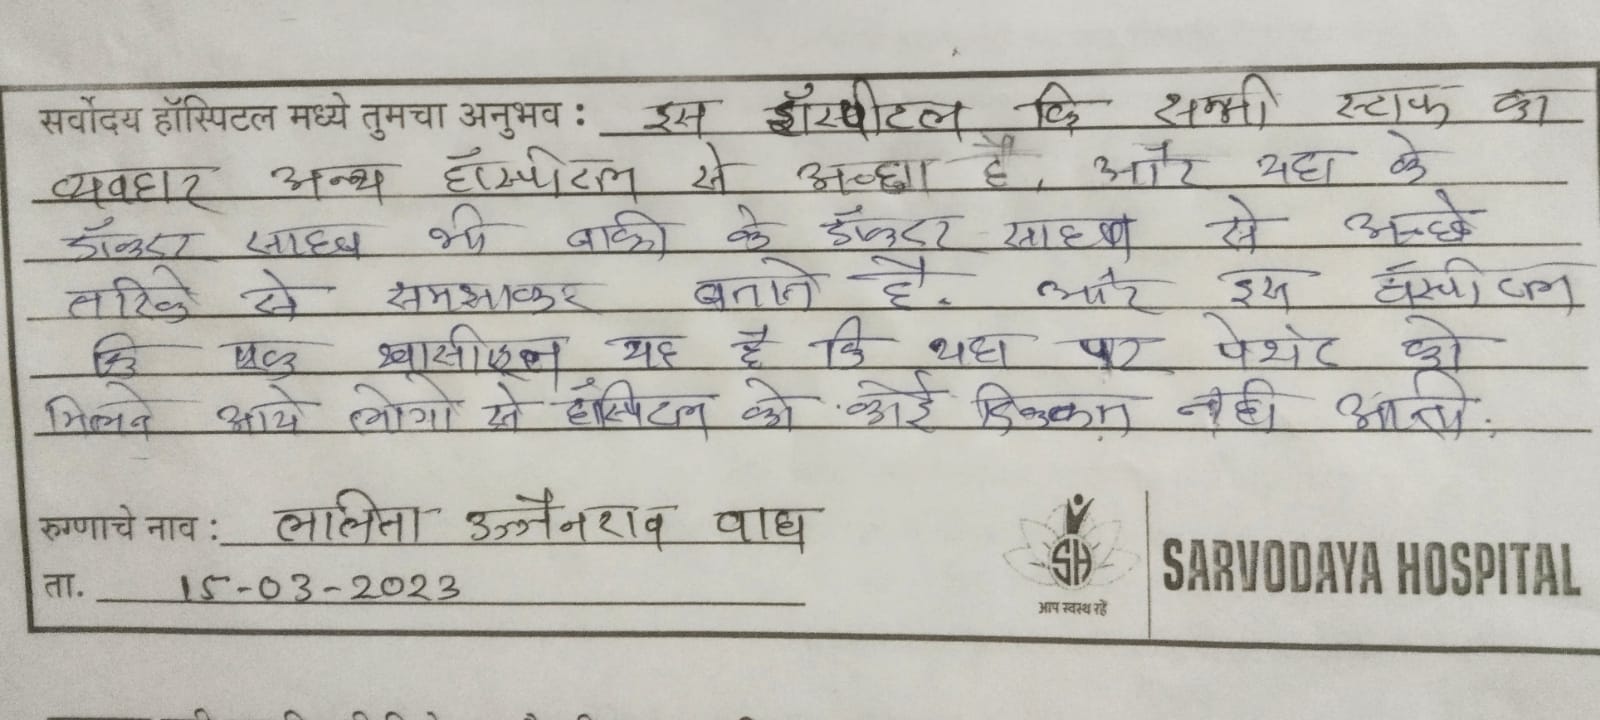 सर्वोदय हॉस्पिटल मध्ये तुमचा अनुभव : इस हॉस्पीटल कि सभी स्टाफ का
व्यवहार अन्य हॉस्पीटल से अच्छा है, और यहा के
डॉक्टर साहब भी बाकी के डॉक्टर साहब से अच्छे
तरिके से समझाकर बताते है. और इस हॉस्पीटल
कि एक खासीएत यह है कि यहा पर पेशंट को
मिलने आये लोगो से हॉस्पिटल को कोई दिक्कत नही आती.
रुग्णाचे नाव : ललिता उज्जैनराव वाघ
ता. 15-03-2023
SH
आप स्वस्थ रहें
SARVODAYA HOSPITAL